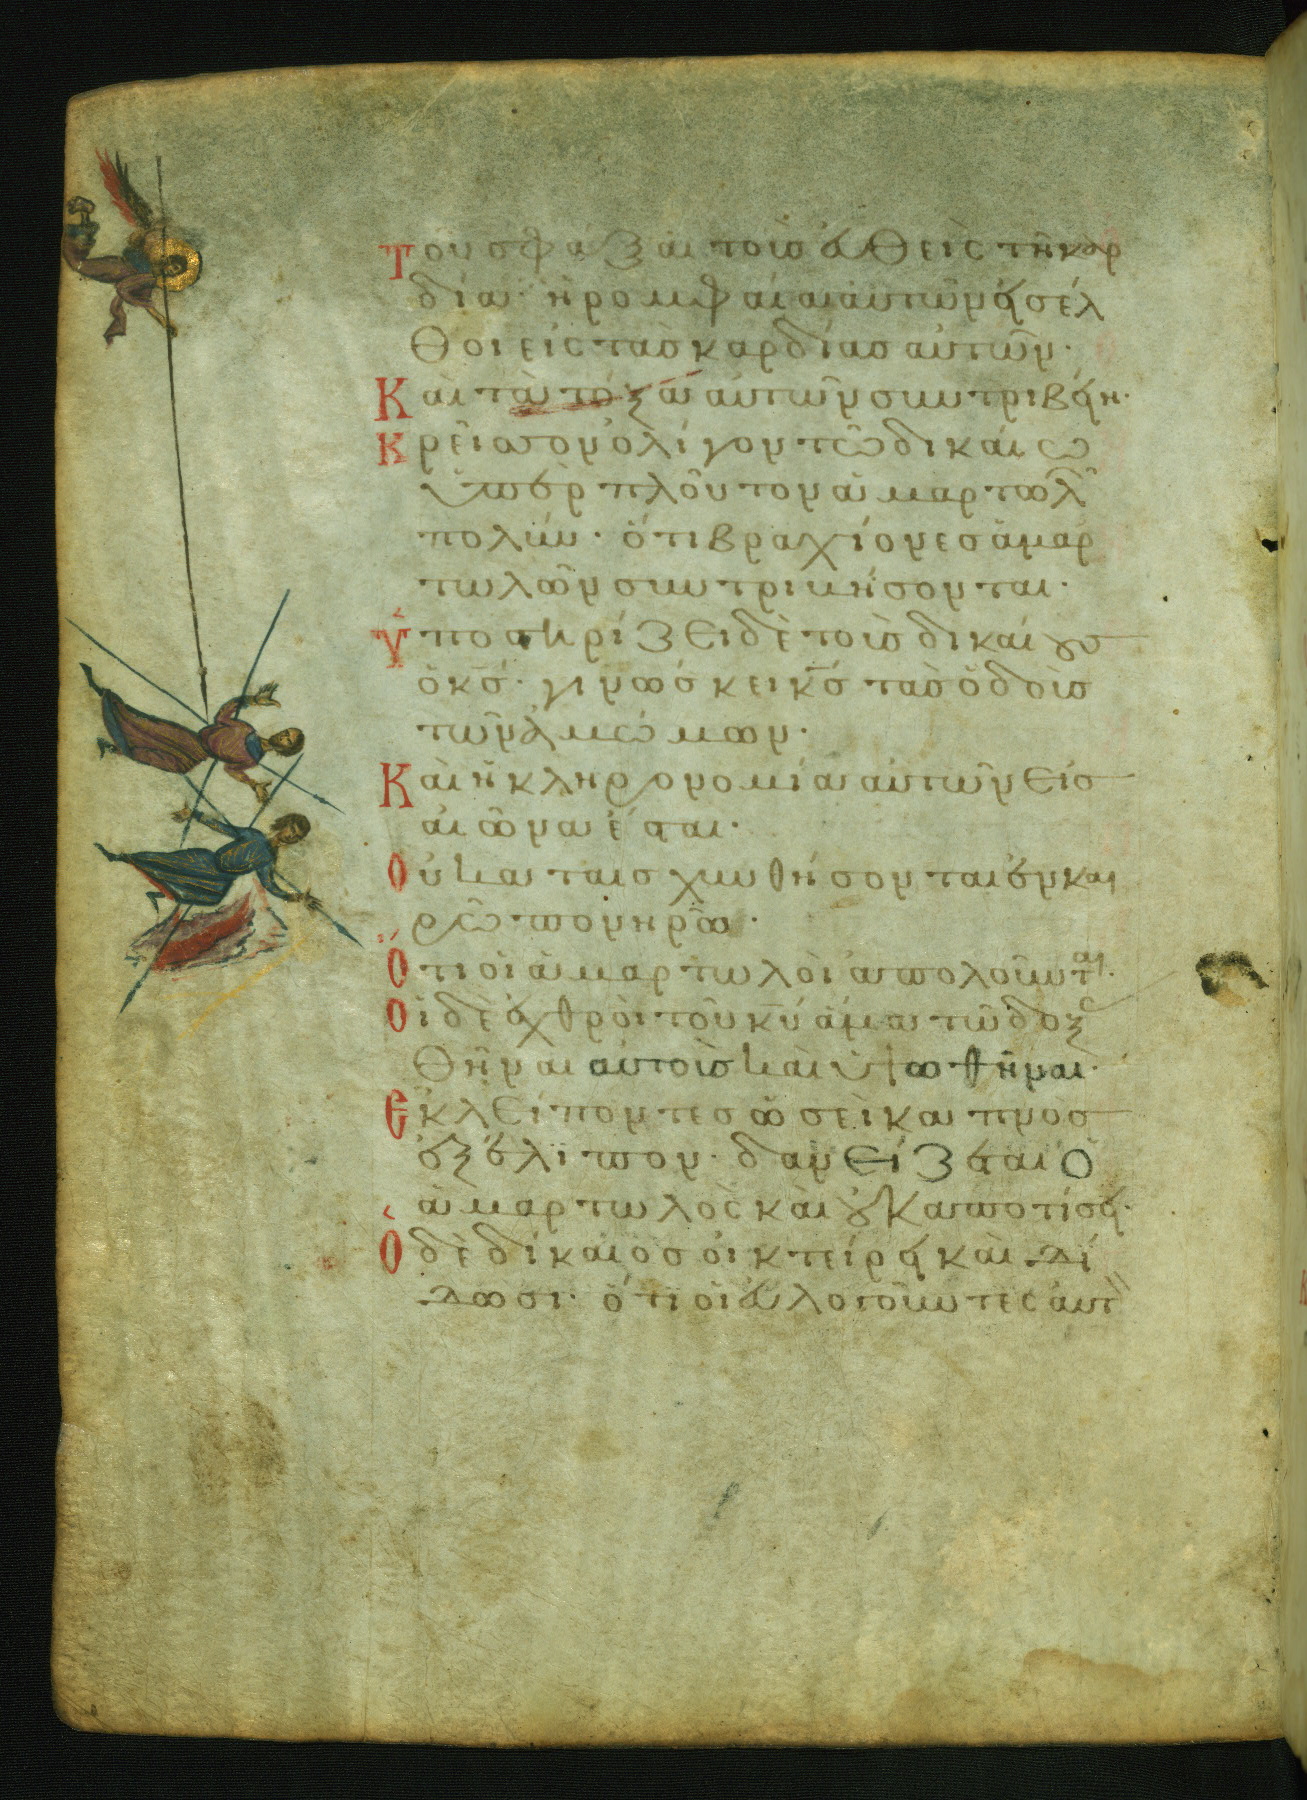 Τοῦ σφάξαι τοὺς εὐθεῖς τῇ καρ
δίᾳ· ἡ ρομφαία αὐτῶν εἰσέλ
θοι εἰς τὰς καρδίας αὐτῶν·
Καὶ τὰ τόξα αὐτῶν συντριβείη·
Κρεῖσσον ὀλίγον τῷ δικαίῳ
ὑπὲρ πλοῦτον ἁμαρτωλ
πολύν· ὅτι βραχίονες ἁμαρ
τωλῶν συντριβήσονται·
Ὑποστηρίζει δὲ τοὺς δικαίους
ὁ κ̅ς̅· γινώσκει κ̅ς̅ τὰς ὁδοὺς
τῶν ἀμώμων·
Καὶ ἡ κληρονομία αὐτῶν εἰς
αἰῶνα ἔσται·
Οὐ καταισχυνθήσονται ἐν και
ρῷ πονηρῷ·
Ὅτι οἱ ἁμαρτωλοὶ ἀπολοῦνται·
Οἱ δὲ ἐχθροὶ τοῦ κ̅υ̅ ἅμα τῷ δοξασ
θῆναι αὐτοὺς καὶ ὑψωθῆναι·
Ἐκλείποντες ὡσεὶ καπνὸς
ἐξέλιπον· δανείζεται ὁ
ἁμαρτωλὸς καὶ οὐκ ἀποτίσει·
Ὁ δὲ δίκαιος οἰκτείρει καὶ δί
δωσι· ὅτι οἱ εὐλογοῦντες αὐτ